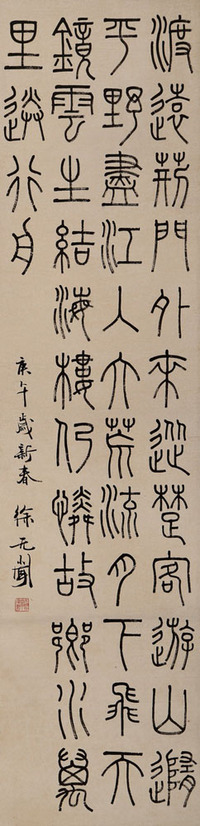 渡遠荊門外來從楚客遊山隨
平野盡江入大荒流月下飛天
鏡雲生結海樓仍憐故鄉水萬
里送行舟
庚午歲新春 徐无聞